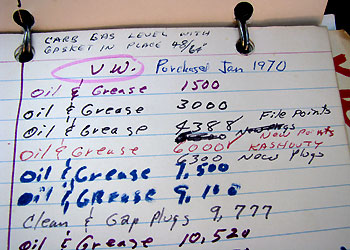 CARB GAS LEVEL WITH
GASKET IN PLACE 48/64"
V.W. Purchased Jan 1970
Oil & Grease 1500
Oil & Grease 3000
Oil & Grease 4388 File Points
Oil & Grease 6000 New Points
6300 New Plugs
Oil & Grease 7,500
Oil & GRease 9,100
Clean & Gap Plugs 9,777
Oil & Grease 10,520